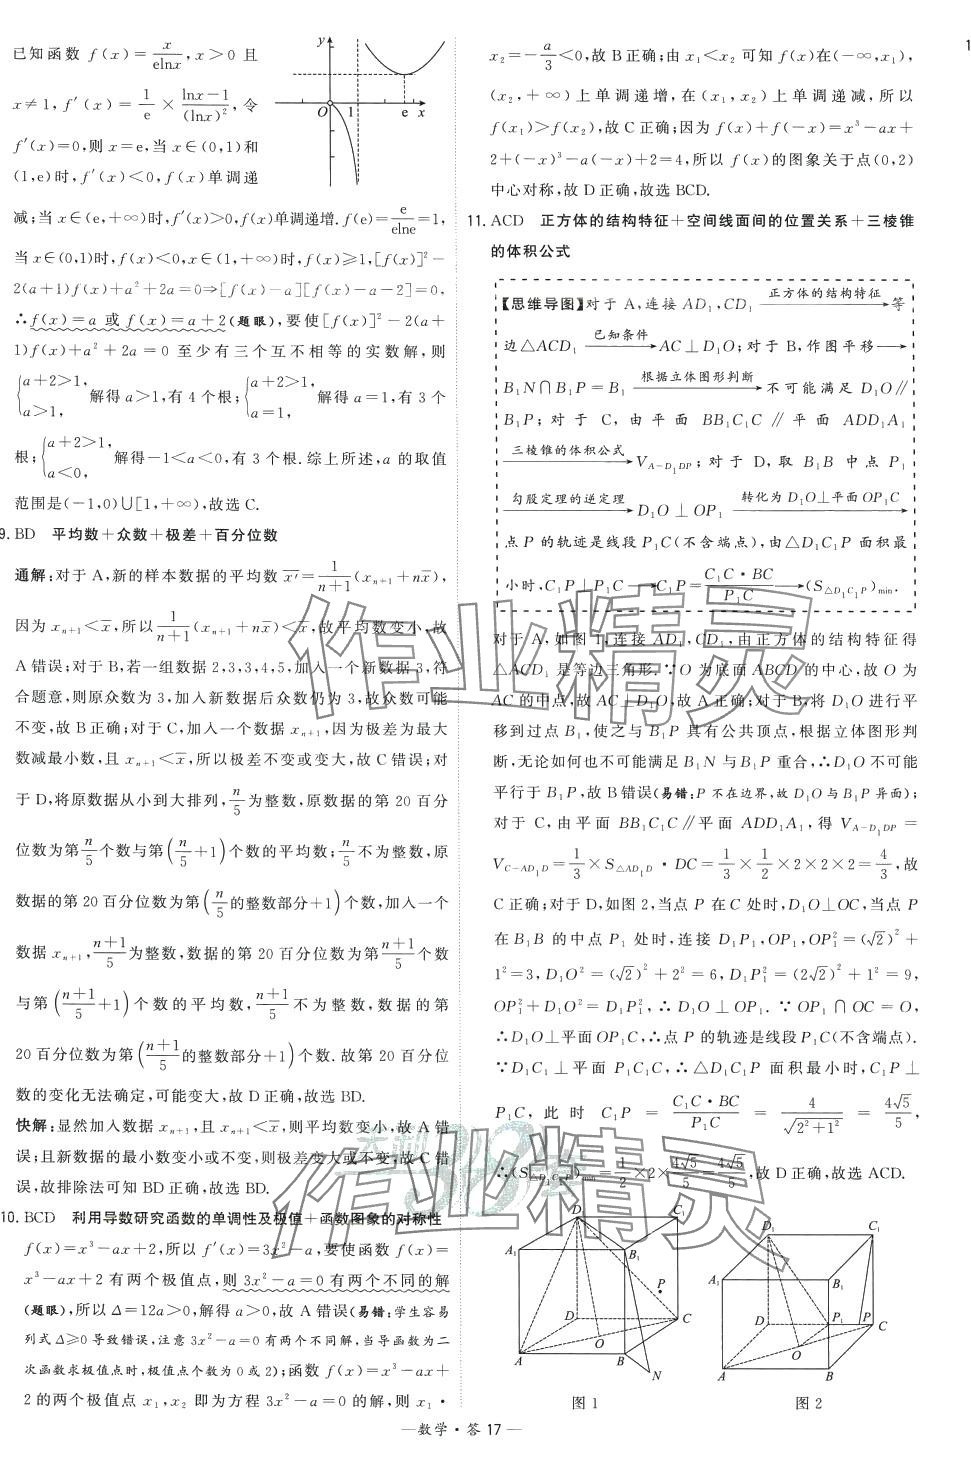 已知函数 f(x)=x/(elnx),x>0 且
x≠1,f′(x)=1/e×(lnx−1)/(lnx)²,令
f′(x)=0,则 x=e,当 x∈(0,1)和
(1,e)时,f′(x)<0,f(x)单调递
减;当 x∈(e,+∞)时,f′(x)>0,f(x)单调递增. f(e)=e/(elne)=1,
当 x∈(0,1)时,f(x)<0,x∈(1,+∞)时,f(x)≥1,[f(x)]²−
2(a+1)f(x)+a²+2a=0⇒[f(x)−a][f(x)−a−2]=0,
∴f(x)=a 或 f(x)=a+2(题眼),要使[f(x)]²−2(a+
1)f(x)+a²+2a=0 至少有三个互不相等的实数解,则
{a+2>1, a>1, 解得 a>1,有 4 个根;{a+2>1, a=1, 解得 a=1,有 3 个
根;{a+2>1, a<0, 解得−1<a<0,有 3 个根. 综上所述,a 的取值
范围是(−1,0)∪[1,+∞),故选 C.
9. BD 平均数+众数+极差+百分位数
通解:对于 A,新的样本数据的平均数 x̄′=1/(n+1)(xₙ₊₁+nx̄),
因为 xₙ₊₁<x̄,所以 1/(n+1)(xₙ₊₁+nx̄)<x̄,故平均数变小,故
A 错误;对于 B,若一组数据 2,3,3,4,5,加入一个新数据 3,符
合题意,则原众数为 3,加入新数据后众数仍为 3,故众数可能
不变,故 B 正确;对于 C,加入一个数据 xₙ₊₁,因为极差为最大
数减最小数,且 xₙ₊₁<x̄,所以极差不变或变大,故 C 错误;对
于 D,将原数据从小到大排列,n/5 为整数,原数据的第 20 百分
位数为第 n/5 个数与第(n/5+1)个数的平均数;n/5 不为整数,原
数据的第 20 百分位数为第(n/5 的整数部分+1)个数,加入一个
数据 xₙ₊₁,(n+1)/5 为整数,数据的第 20 百分位数为第 (n+1)/5 个数
与第((n+1)/5+1)个数的平均数,(n+1)/5 不为整数,数据的第
20 百分位数为第((n+1)/5 的整数部分+1)个数. 故第 20 百分位
数的变化无法确定,可能变大,故 D 正确,故选 BD.
快解:显然加入数据 xₙ₊₁,且 xₙ₊₁<x̄,则平均数变小,故 A 错
误;且新数据的最小数变小或不变,则极差变大或不变,故 C 错
误,故排除法可知 BD 正确,故选 BD.
10. BCD 利用导数研究函数的单调性及极值+函数图象的对称性
f(x)=x³−ax+2,所以 f′(x)=3x²−a,要使函数 f(x)=
x³−ax+2 有两个极值点,则 3x²−a=0 有两个不同的解
(题眼),所以 Δ=12a>0,解得 a>0,故 A 错误(易错:学生容易
列式 Δ≥0 导致错误,注意 3x²−a=0 有两个不同解,当导函数为二
次函数求极值点时,极值点个数为 0 或 2);函数 f(x)=x³−ax+
2 的两个极值点 x₁,x₂ 即为方程 3x²−a=0 的解,则 x₁·
y
O
1
e
x
x₂=−a/3<0,故 B 正确;由 x₁<x₂ 可知 f(x)在(−∞,x₁),
(x₂,+∞)上单调递增,在(x₁,x₂)上单调递减,所以
f(x₁)>f(x₂),故 C 正确;因为 f(x)+f(−x)=x³−ax+
2+(−x)³−a(−x)+2=4,所以 f(x)的图象关于点(0,2)
中心对称,故 D 正确,故选 BCD.
11. ACD 正方体的结构特征+空间线面间的位置关系+三棱锥
的体积公式
【思维导图】对于 A,连接 AD₁,CD₁ 正方体的结构特征→等
边△ACD₁ 已知条件→AC⊥D₁O;对于 B,作图平移→
B₁N∩B₁P=B₁ 根据立体图形判断→不可能满足 D₁O∥
B₁P;对于 C,由平面 BB₁C₁C∥平面 ADD₁A₁
三棱锥的体积公式→V_{A−D₁DP};对于 D,取 B₁B 中点 P₁
勾股定理的逆定理→D₁O⊥OP₁ 转化为 D₁O⊥平面 OP₁C→
点 P 的轨迹是线段 P₁C(不含端点),由△D₁C₁P 面积最
小时,C₁P⊥P₁C→C₁P=(C₁C·BC)/(P₁C)→(S_{△D₁C₁P})min.
对于 A,如图 1,连接 AD₁,CD₁,由正方体的结构特征得
△ACD₁ 是等边三角形. ∵O 为底面 ABCD 的中心,故 O 为
AC 的中点,故 AC⊥D₁O,故 A 正确;对于 B,将 D₁O 进行平
移到过点 B₁,使之与 B₁P 具有公共顶点,根据立体图形判
断,无论如何也不可能满足 B₁N 与 B₁P 重合,∴D₁O 不可能
平行于 B₁P,故 B 错误(易错:P 不在边界,故 D₁O 与 B₁P 异面);
对于 C,由平面 BB₁C₁C∥平面 ADD₁A₁,得 V_{A−D₁DP}=
V_{C−AD₁D}=1/3×S_{△AD₁D}·DC=1/3×1/2×2×2×2=4/3,故
C 正确;对于 D,如图 2,当点 P 在 C 处时,D₁O⊥OC,当点 P
在 B₁B 的中点 P₁ 处时,连接 D₁P₁,OP₁,OP₁²=(√2)²+
1²=3,D₁O²=(√2)²+2²=6,D₁P₁²=(2√2)²+1²=9,
OP₁²+D₁O²=D₁P₁²,∴D₁O⊥OP₁. ∵OP₁∩OC=O,
∴D₁O⊥平面 OP₁C,∴点 P 的轨迹是线段 P₁C(不含端点).
∵D₁C₁⊥平面 P₁C₁C,∴△D₁C₁P 面积最小时,C₁P⊥
P₁C,此时 C₁P=(C₁C·BC)/(P₁C)=4/√(2²+1²)=4√5/5,
∴(S_{△D₁C₁P})min=1/2×2×4√5/5=4√5/5,故 D 正确,故选 ACD.
D₁ C₁ A₁ B₁ P D C O A B N
图 1
D₁ C₁ A₁ B₁ P₁ P D C O A B
图 2
—数学·答 17—
1
作业精灵
作业精灵